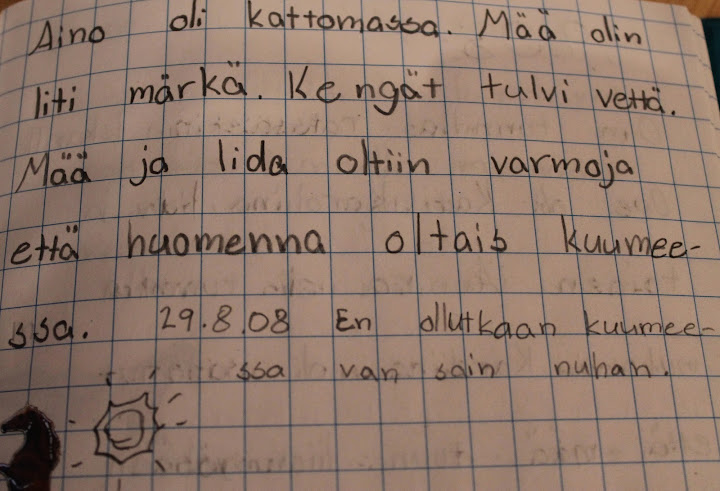 Aino oli kattomassa. Mää olin
liti märkä. Kengät tulvi vettä.
Mää ja Iida oltiin varmoja
että huomenna oltais kuumee-
ssa. 29.8.08 En ollutkaan kuumee-
ssa van sain nuhan.